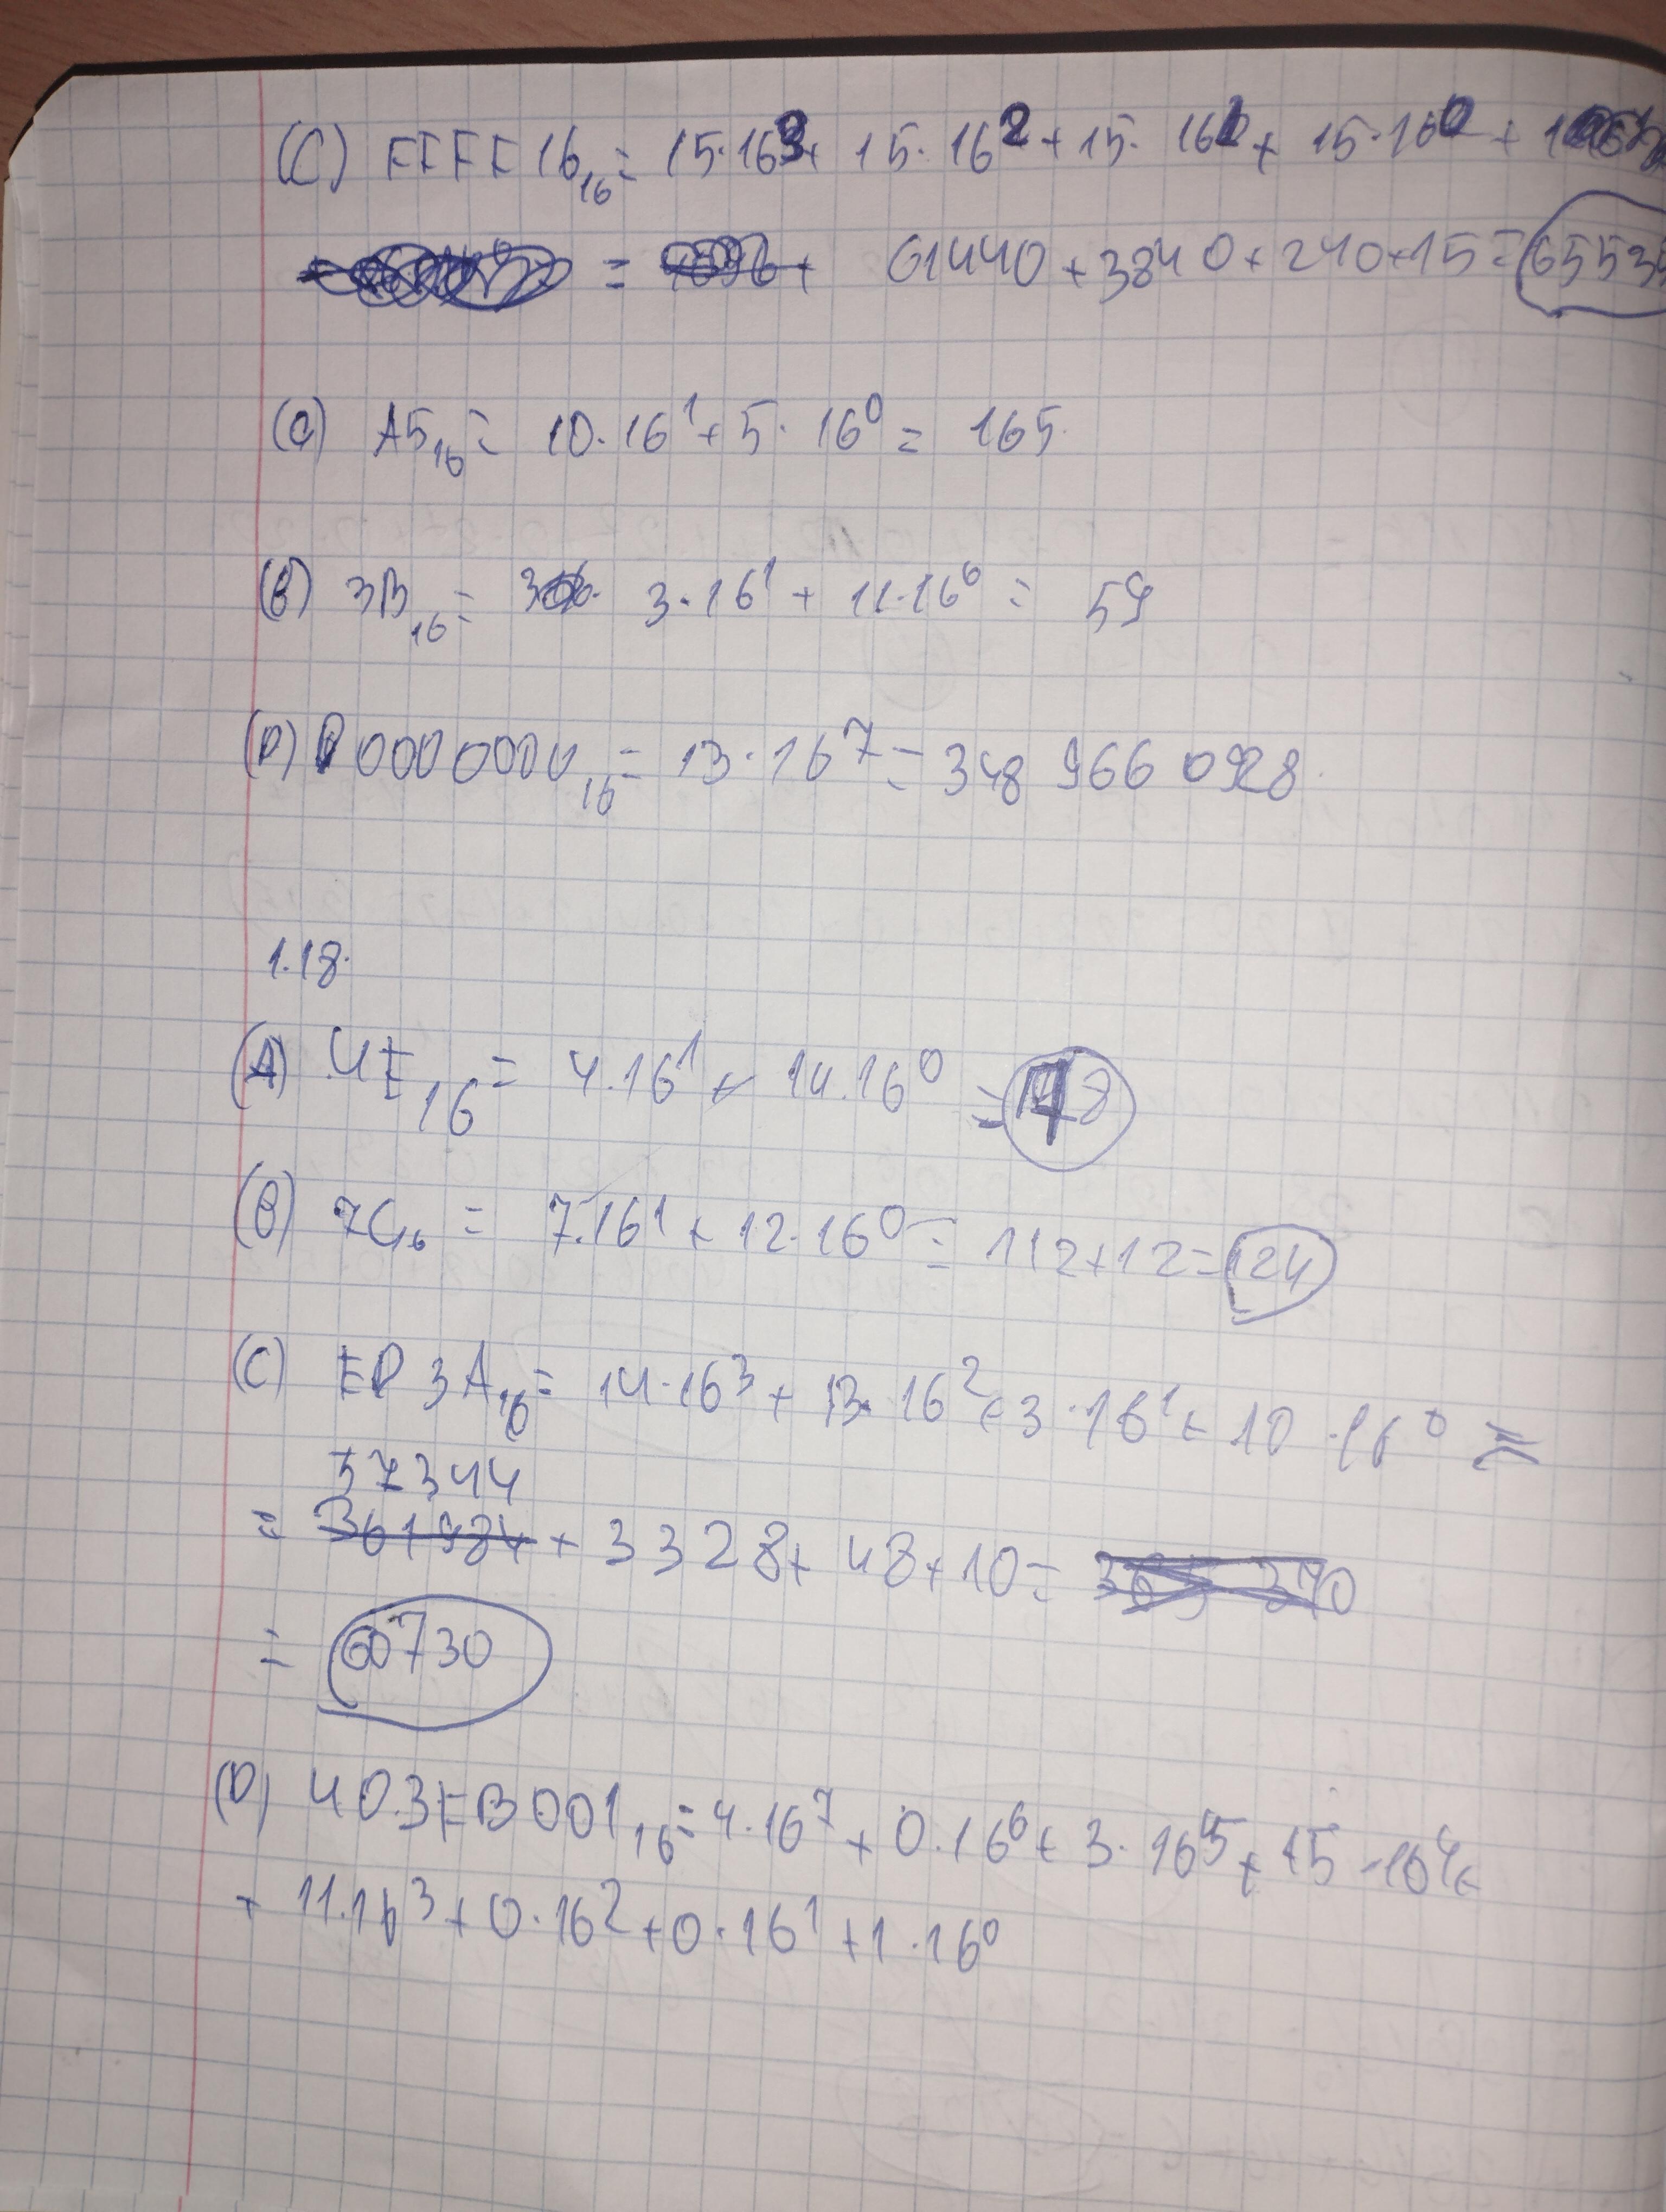 (C) FFFF16₁₆ = 15·16³ + 15·16² + 15·16¹ + 15·16⁰ +
= 61440 + 3840 + 240 + 15 = 65535
(a) A5₁₆ = 10·16¹ + 5·16⁰ = 165
(B) 3B₁₆ = 3·16¹ + 11·16⁰ = 59
(D) D0000000₁₆ = 13·16⁷ = 348 966 0928
1.18.
(A) 4E₁₆ = 4·16¹ + 14·16⁰ = 78
(B) 7C₁₆ = 7·16¹ + 12·16⁰ = 112 + 12 = 124
(C) ED3A₁₆ = 14·16³ + 13·16² + 3·16¹ + 10·16⁰ =
57344
= 361984 + 3328 + 48 + 10 =
= 60730
(D) 403FB001₁₆ = 4·16⁷ + 0·16⁶ + 3·16⁵ + 15·16⁴ +
+ 11·16³ + 0·16² + 0·16¹ + 1·16⁰